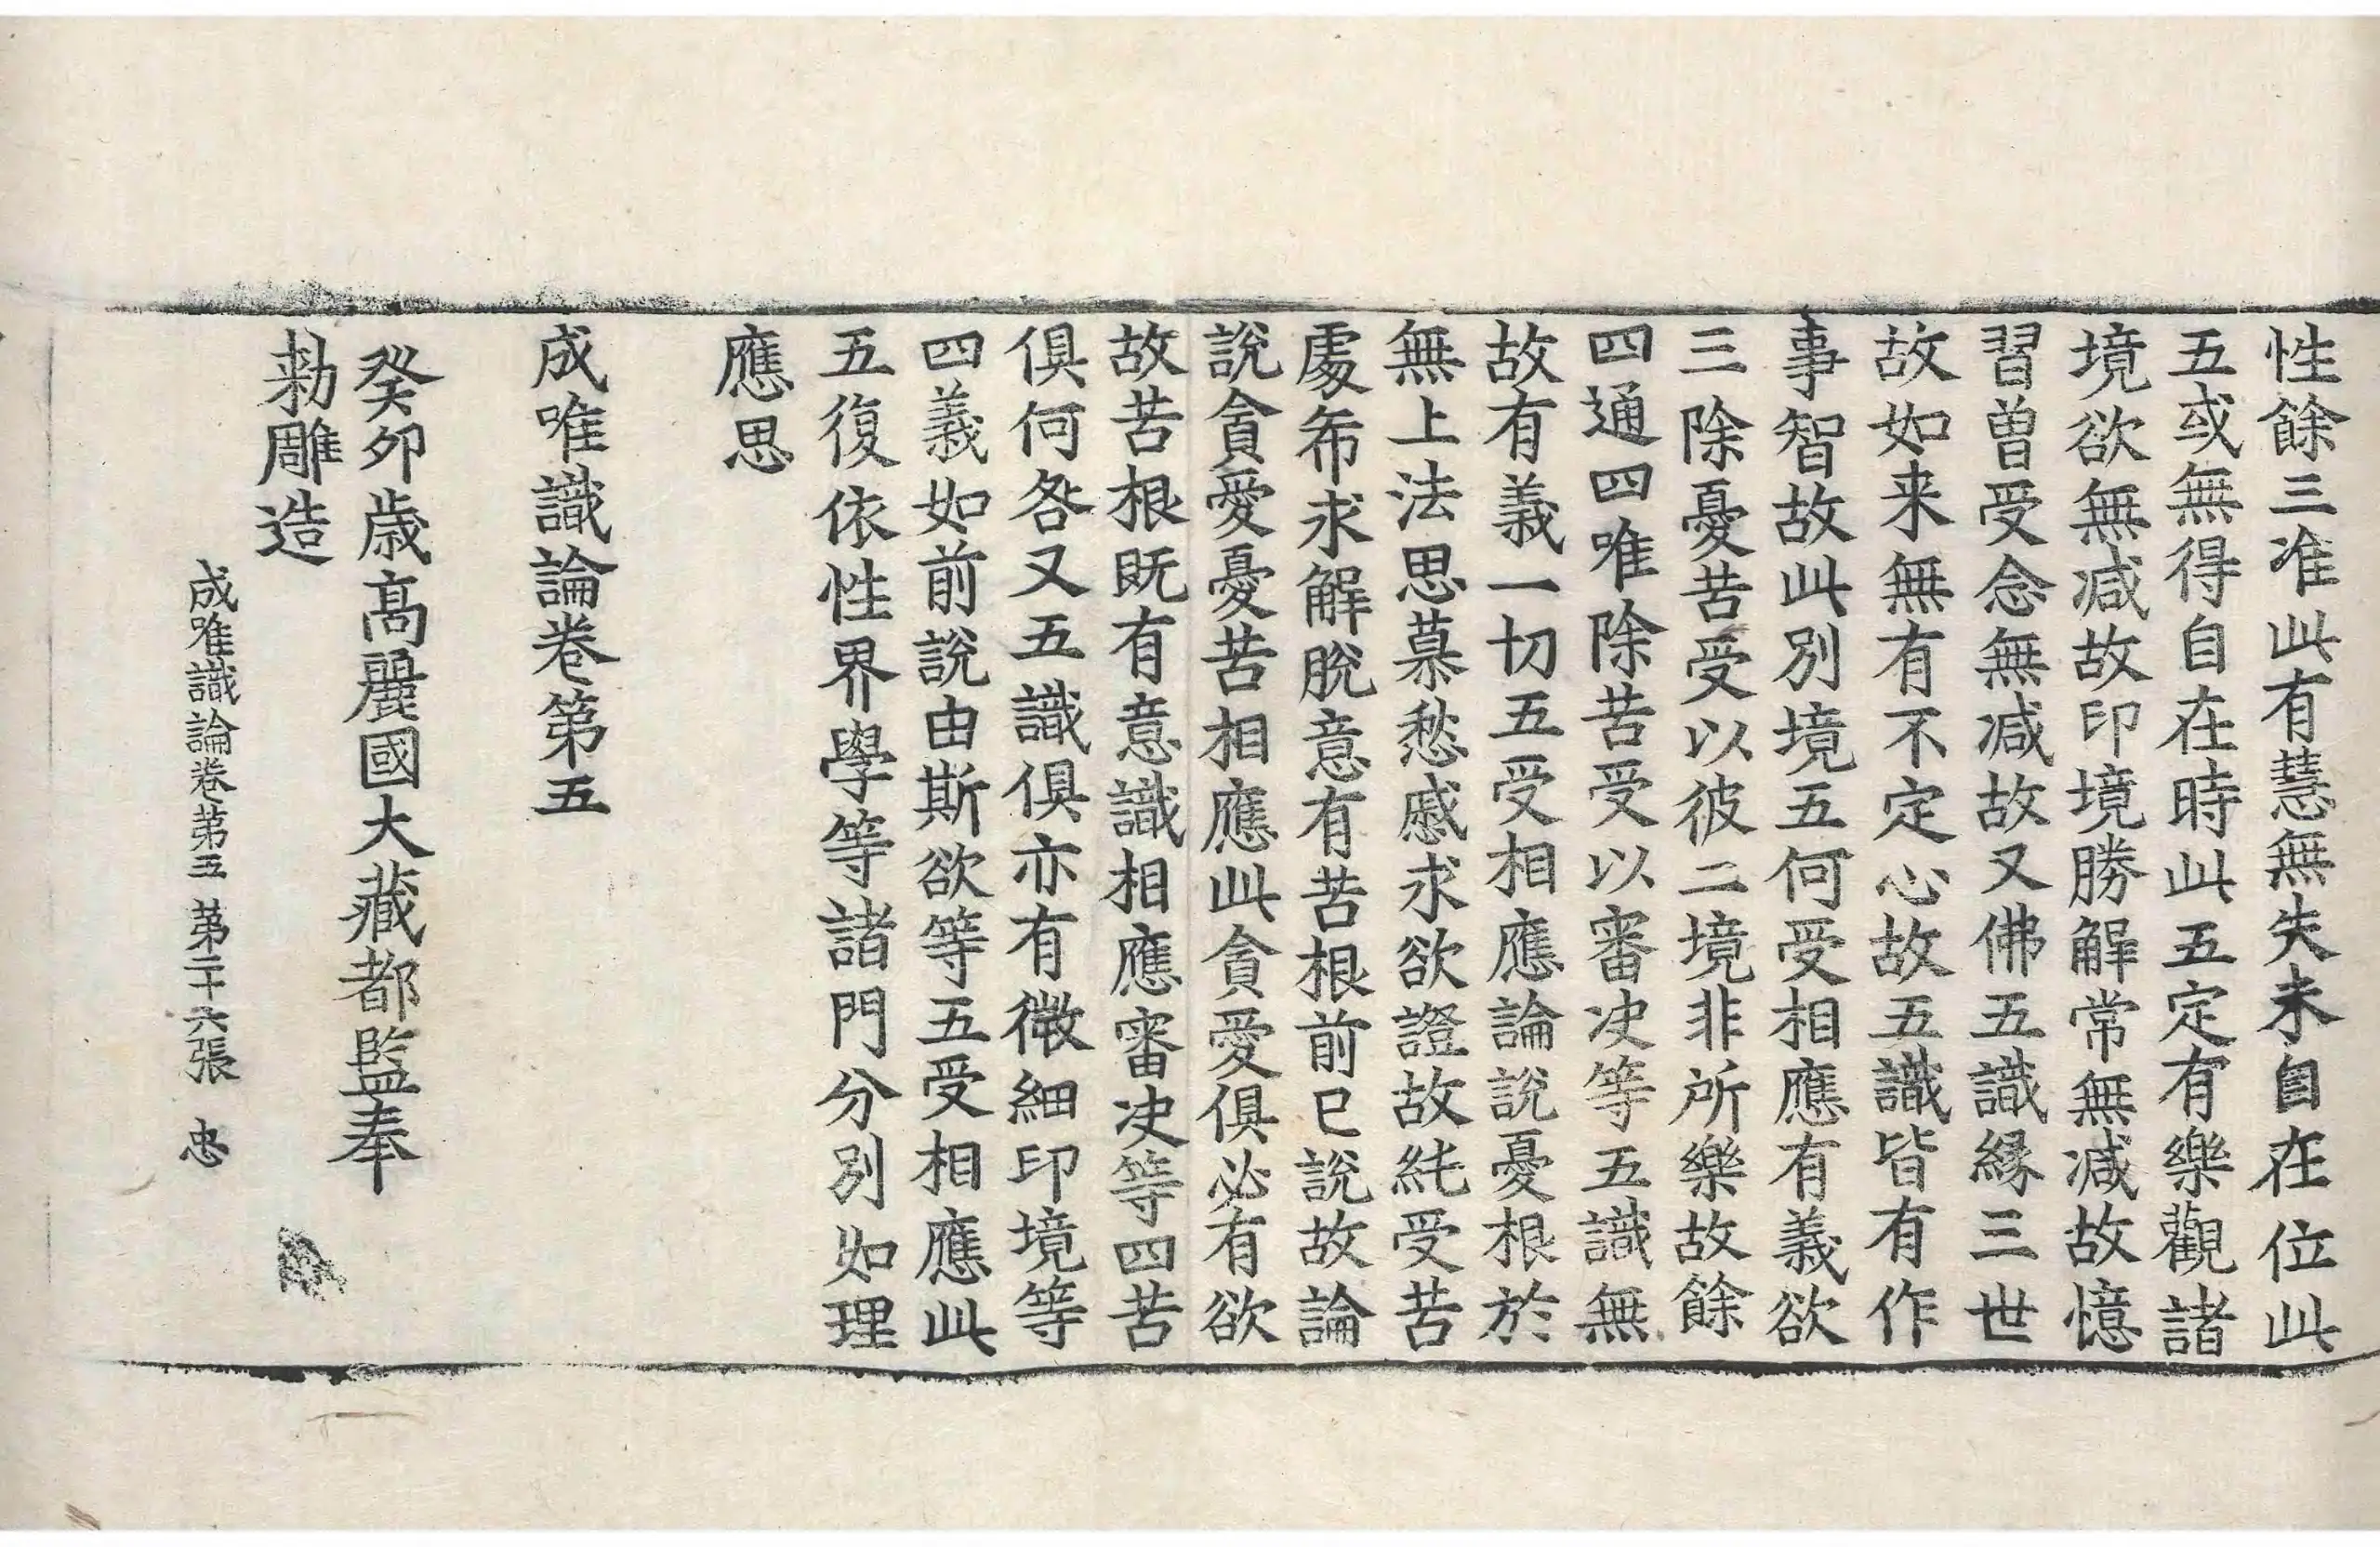 性餘三准此有慧無失未自在位此
五或無得自在時此五定有樂觀諸
境欲無减故印境勝解常無减故憶
習曾受念無减故又佛五識緣三世
故如来無有不定心故五識皆有作
事智故此別境五何受相應有義欲
三除憂苦受以彼二境非所樂故餘
四通四唯除苦受以審决等五識無
故有義一切五受相應論說憂根於
無上法思慕愁慼求欲證故純受苦
處希求解脫意有苦根前已說故論
說貪愛憂苦相應此貪愛俱必有欲
故苦根既有意識相應審决等四苦
俱何咎又五識俱亦有微細印境等
四義如前說由斯欲等五受相應此
五復依性界學等諸門分別如理
應思
成唯識論卷第五
癸卯歲高麗國大藏都監奉
勑雕造
成唯識論卷第五 第二十六張 忠